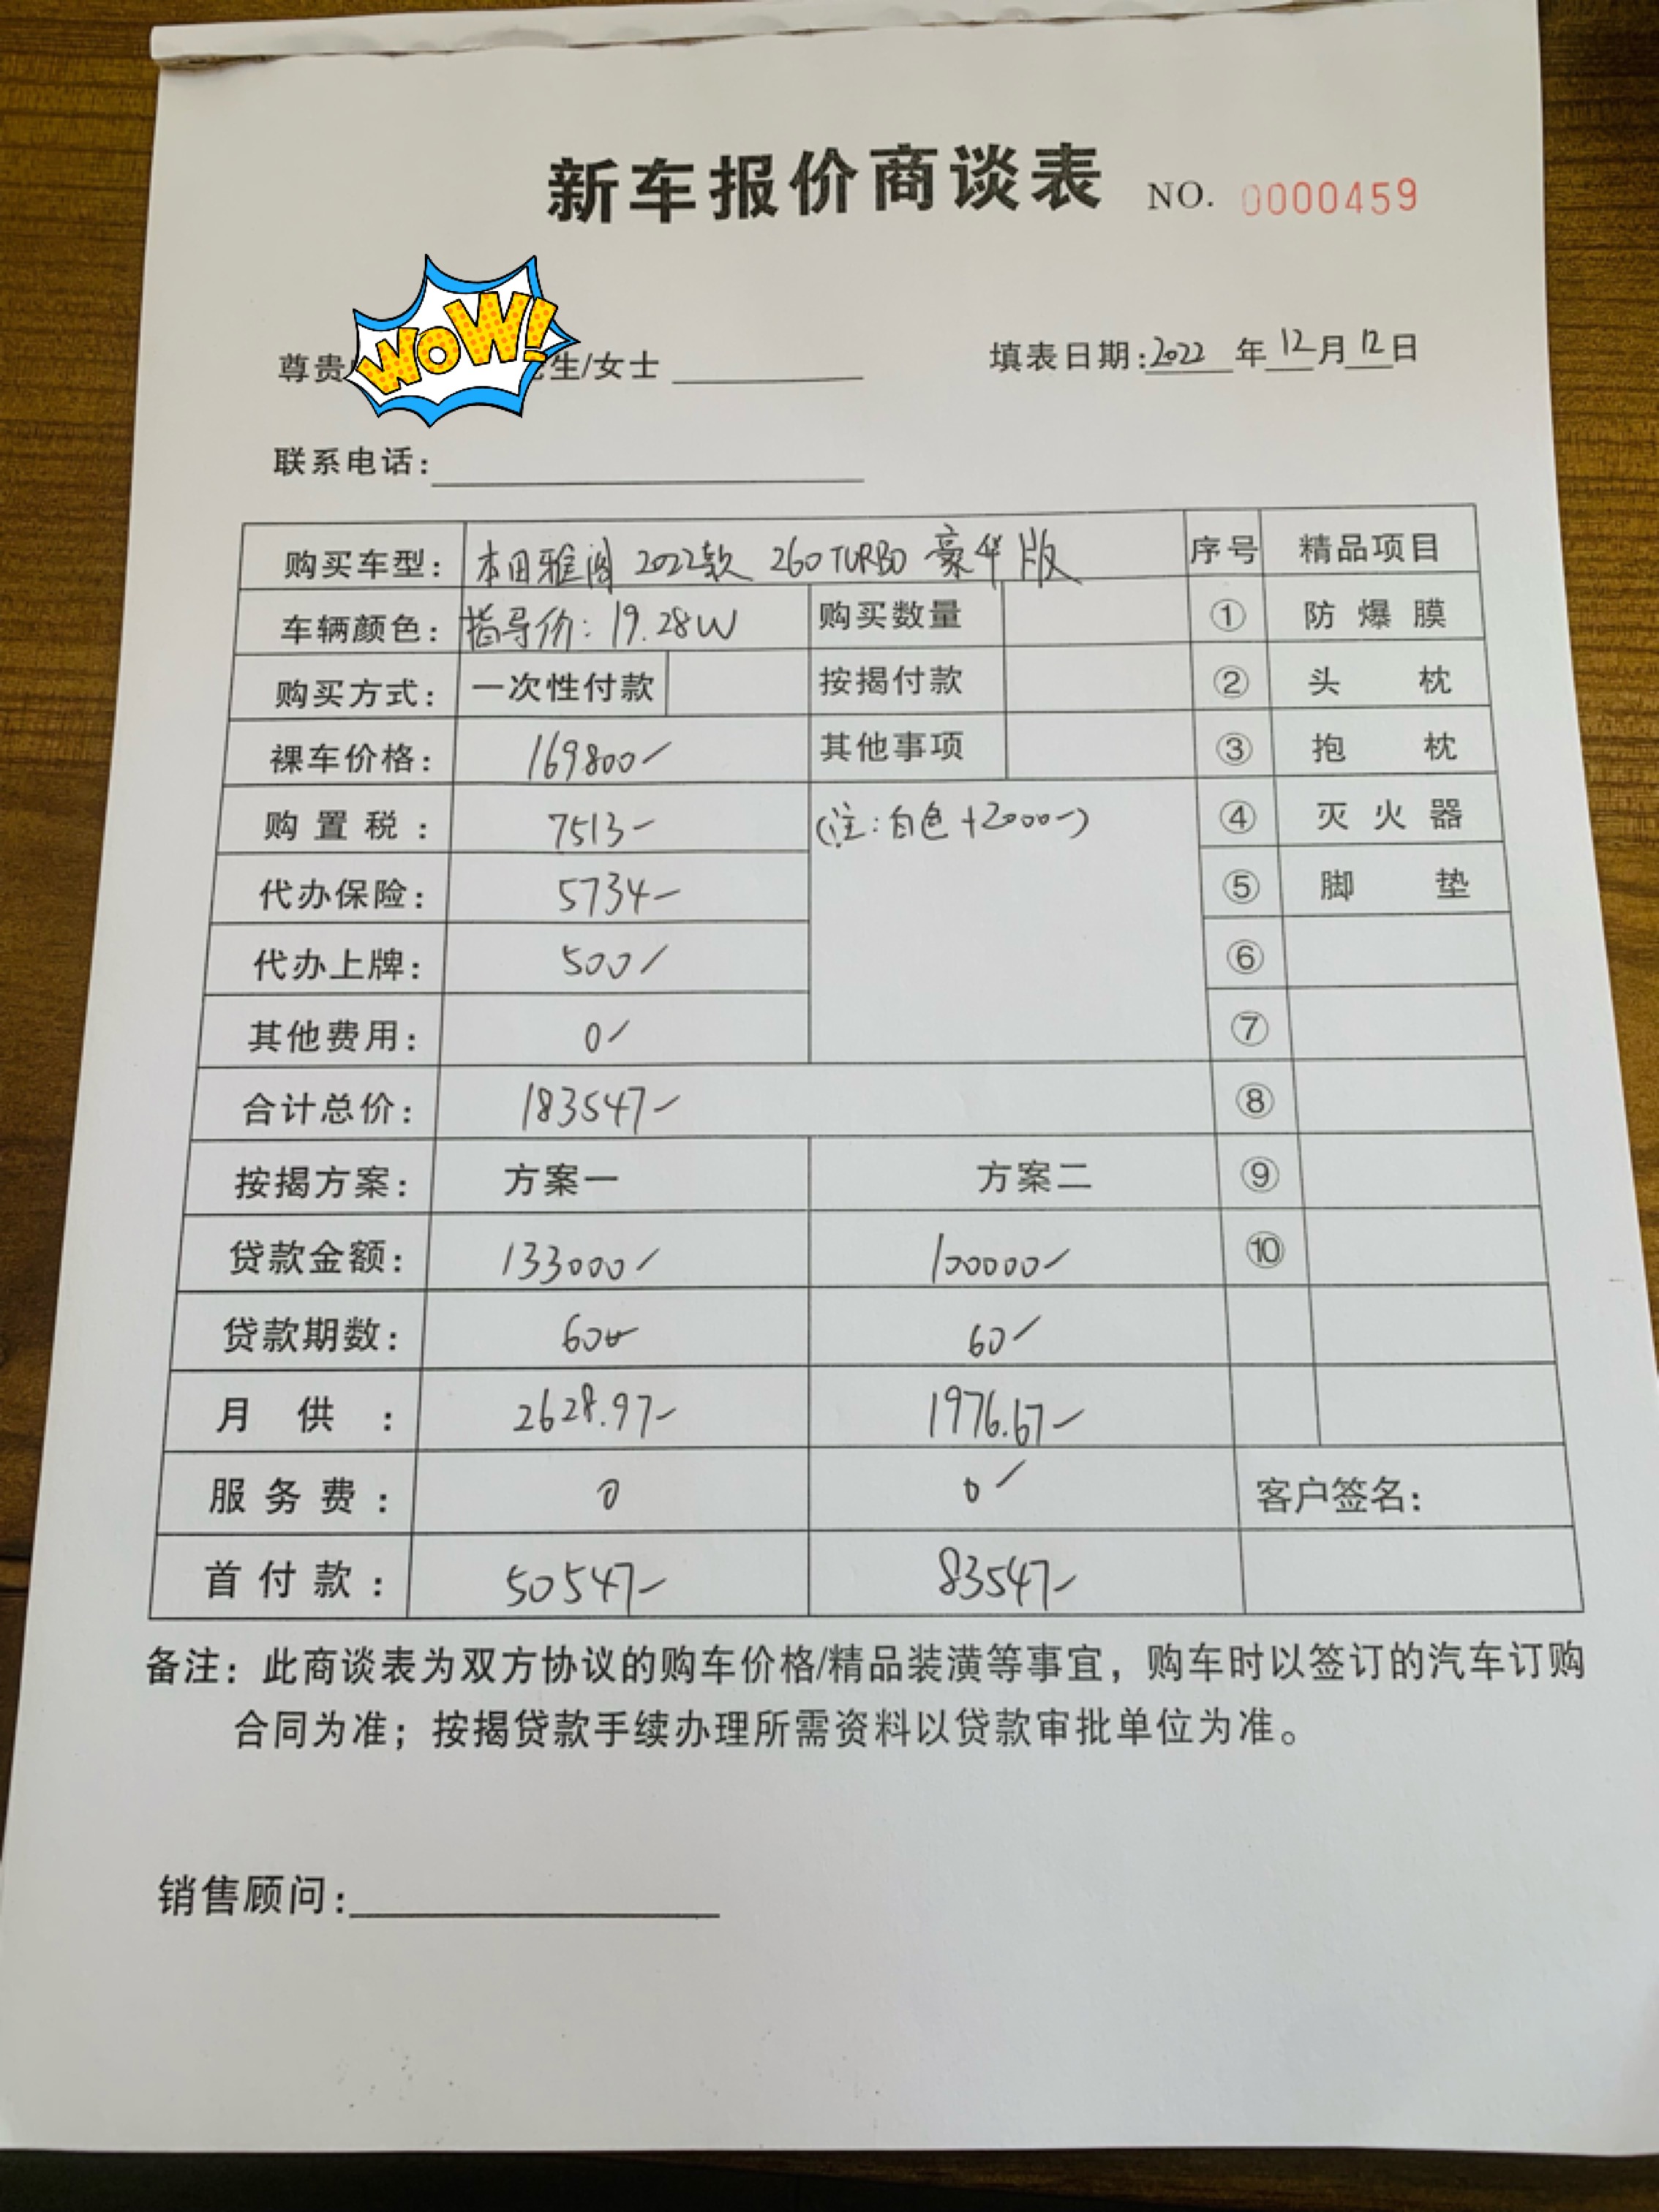 新车报价商谈表 NO. 0000459
WOW!
尊贵 生/女士
填表日期：2022年12月12日
联系电话：
购买车型： 本田雅阁 2022款 260TURBO 豪华版 序号 精品项目
车辆颜色： 指导价：19.28W 购买数量 ① 防爆膜
购买方式： 一次性付款 按揭付款 ② 头枕
裸车价格： 169800 其他事项 ③ 抱枕
购置税： 7513 (注：白色+2000) ④ 灭火器
代办保险： 5734 ⑤ 脚垫
代办上牌： 500 ⑥
其他费用： 0 ⑦
合计总价： 183547 ⑧
按揭方案： 方案一 方案二 ⑨
贷款金额： 133000 100000 ⑩
贷款期数： 60 60
月供： 2628.97 1976.67
服务费： 0 0 客户签名：
首付款： 50547 83547
备注：此商谈表为双方协议的购车价格/精品装潢等事宜，购车时以签订的汽车订购
合同为准；按揭贷款手续办理所需资料以贷款审批单位为准。
销售顾问：